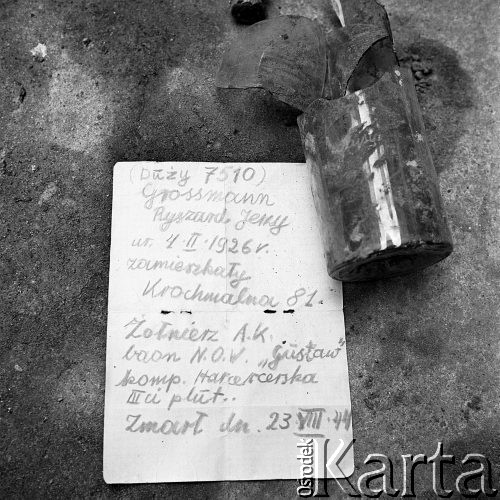 (Duży 7510)
Grossmann
Ryszard Jerzy
ur. 1·II·1926 r.
zamieszkały
Krochmalna 81.
Żołnierz A.K.
baon N.O.W. „Gustaw"
komp. Harcerska
III ci plut..
Zmarł dn. 23 VIII·44
Ośrodek
Karta